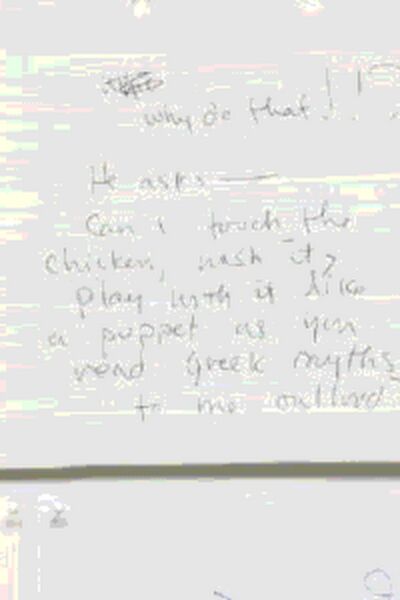 why do that!!
He asks —
Can i touch the
chicken, wash it,
play with it like
a puppet as you
read Greek myths
to me outloud